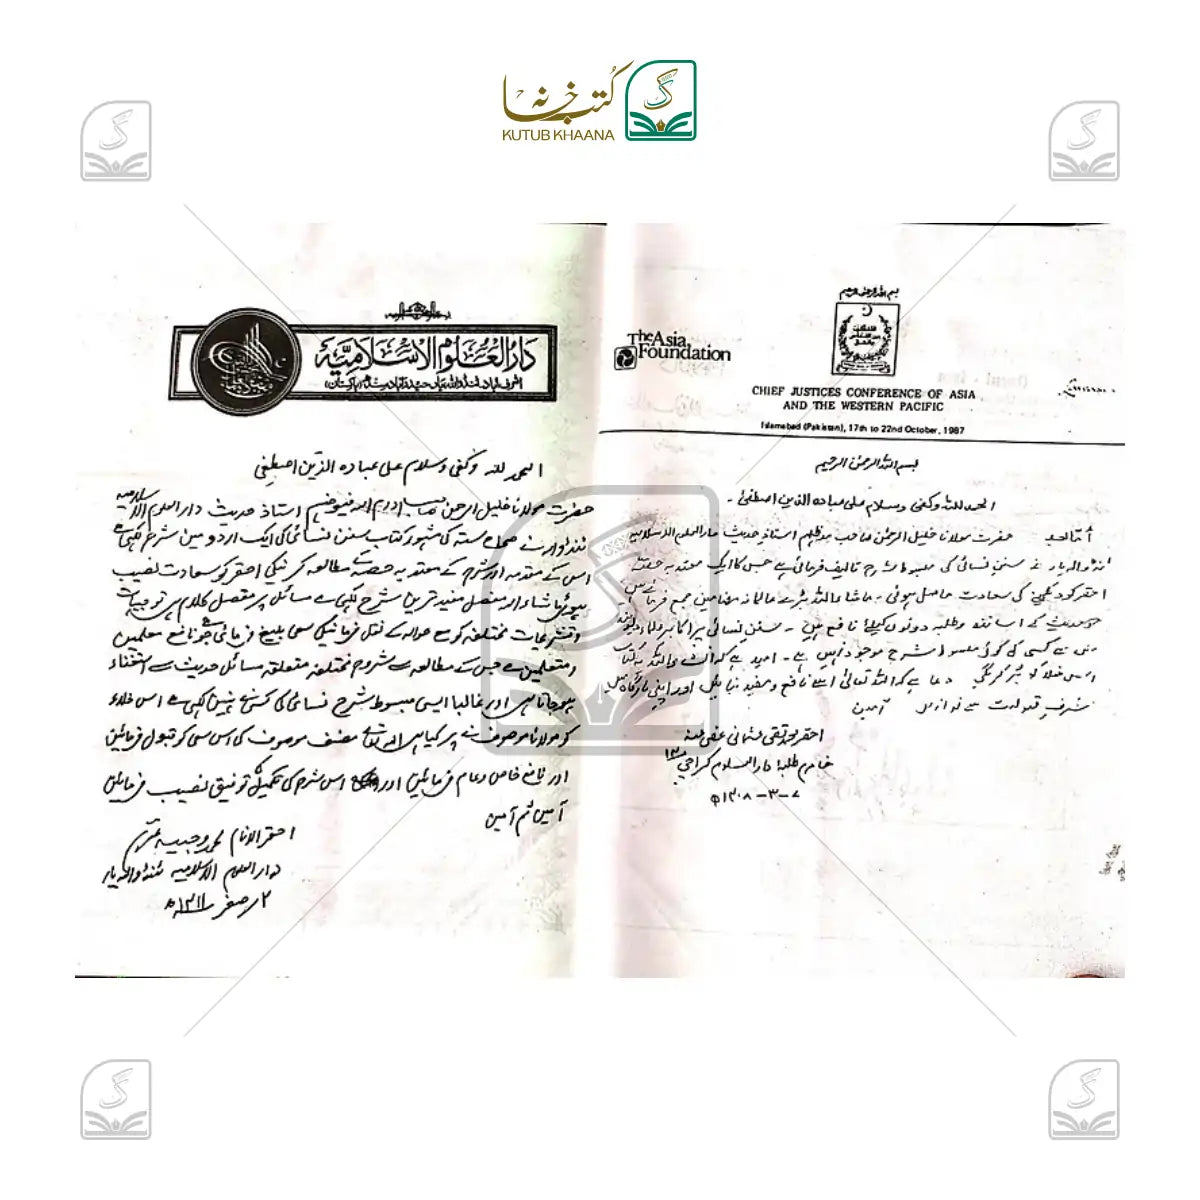 کتب خانہ
KUTUB KHAANA
بسم اللہ الرحمن الرحیم
The Asia
Foundation
CHIEF JUSTICES CONFERENCE OF ASIA
AND THE WESTERN PACIFIC
Islamabad (Pakistan), 17th to 22nd October, 1987
بسم اللہ الرحمن الرحیم
الحمد للہ وکفی وسلام علی عبادہ الذین اصطفی -
أما بعد حضرت مولانا خلیل الرحمٰن صاحب مدظلہم استاذ حدیث دار العلوم الاسلامیہ
ٹنڈو الہ یار نے سنن نسائی کی مبسوط شرح تالیف فرمائی ہے جس کا ایک معتد بہ حصہ
احقر کو دیکھنے کی سعادت حاصل ہوئی - ماشاء اللہ بڑے عالمانہ مضامین جمع فرمائے ہیں
جو حدیث کے اساتذہ وطلبہ دونوں کیلئے نافع ہیں - سنن نسائی پر اکابر علماء
میں سے کسی کی کوئی مبسوط شرح موجود نہیں ہے - امید ہے کہ ان شاء اللہ یہ کتاب
اس خلا کو پُر کریگی دعا ہے کہ اللہ تعالی اسے نافع و مفید بنائیں اور اپنی بارگاہ میں
شرف قبولیت سے نوازیں آمین
احقر محمد تقی عثمانی عفی عنہ
خادم طلبہ دار العلوم کراچی
۷-۳-۱۴۰۸ھ
دار العلوم الاسلامیہ
اشرف آباد ٹنڈو الہ یار حیدرآباد سندھ (پاکستان)
الحمد للہ وکفی وسلام علی عبادہ الذین اصطفی
حضرت مولانا خلیل الرحمن صاحب دام فیوضہم استاذ حدیث دار العلوم الاسلامیہ
ٹنڈو الہ یار نے صحاح ستہ کی مشہور کتاب سنن نسائی کی ایک اردو میں شرح لکھی ہے
اس کے مقدمہ اور شرح کے معتد بہ حصہ کے مطالعہ کرنیکی احقر کو سعادت نصیب
ہوئی ماشاء اللہ مفصل مفید ترین شرح لکھی ہے مسائل پر مفصل کلام ہے توجیہات
وتشریحات مختلفہ کو مع حوالہ کے نقل فرمانیکی سعی بلیغ فرمائی ہے جو نافع معلمین
و متعلمین ہے جس کے مطالعہ سے شروح مختلفہ متعلقہ مسائل حدیث سے استغناء
ہو جاتا ہے اور غالبا ایسی مبسوط شرح نسائی کی کسی نے نہیں لکھی ہے اس خلاء
کو مولانا موصوف نے پر کیا ہے اللہ تعالیٰ مصنف موصوف کی اس سعی کو قبول فرمائیں
اور نافع خاص و عام فرمائیں اور اس شرح کی تکمیل کی توفیق نصیب فرمائیں
آمین ثم آمین
احقر الانام محمد وجیہ
دار العلوم الاسلامیہ ٹنڈو الہ یار
۲ صفر ۱۴۱۱ھ